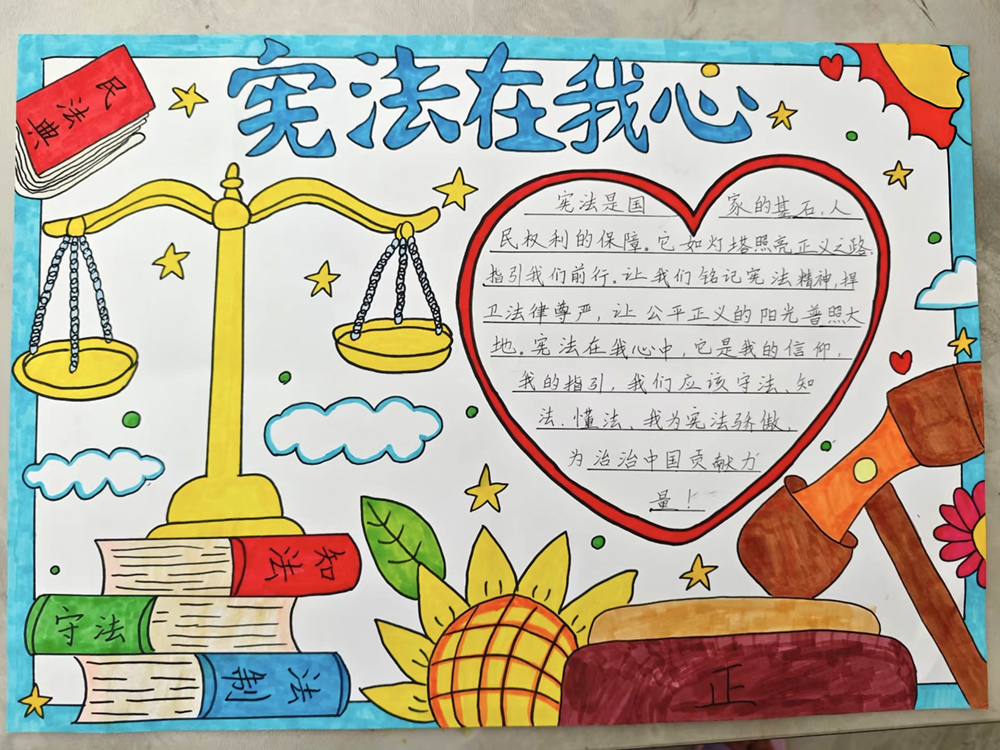 宪法在我心
民法典
宪法是国 家的基石,人
民权利的保障。它如灯塔照亮正义之路,
指引我们前行。让我们铭记宪法精神,捍
卫法律尊严,让公平正义的阳光普照大
地。宪法在我心中,它是我的信仰,
我的指引,我们应该守法、知
法、懂法、我为宪法骄傲,
为治治中国贡献力
量!
知法
守法
法制
正